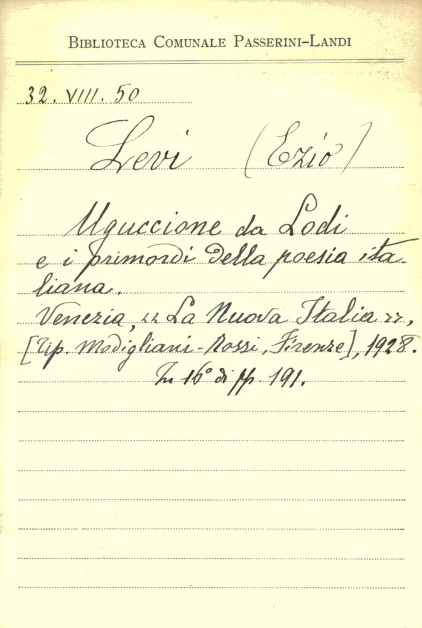 BIBLIOTECA COMUNALE PASSERINI-LANDI
32. VIII. 50
Levi (Ezio)
Uguccione da Lodi
e i primordi della poesia ita-
liana.
Venezia, « La Nuova Italia »,
[Tip. Modigliani-Rossi, Firenze], 1928.
In 16° di pp. 191.